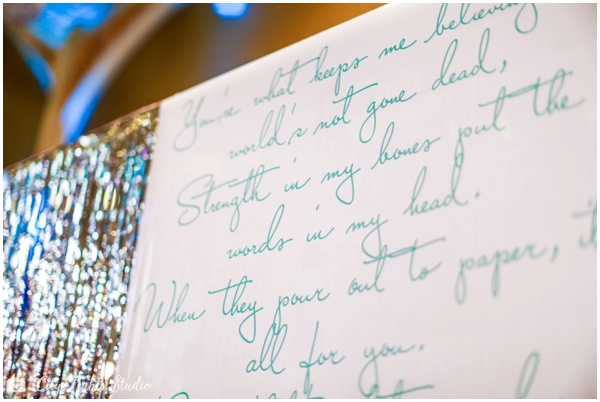 You're what keeps me believing
world's not gone dead,
Strength in my bones put the
words in my head.
When they pour out to paper, it
all for you.
City Lights Studio